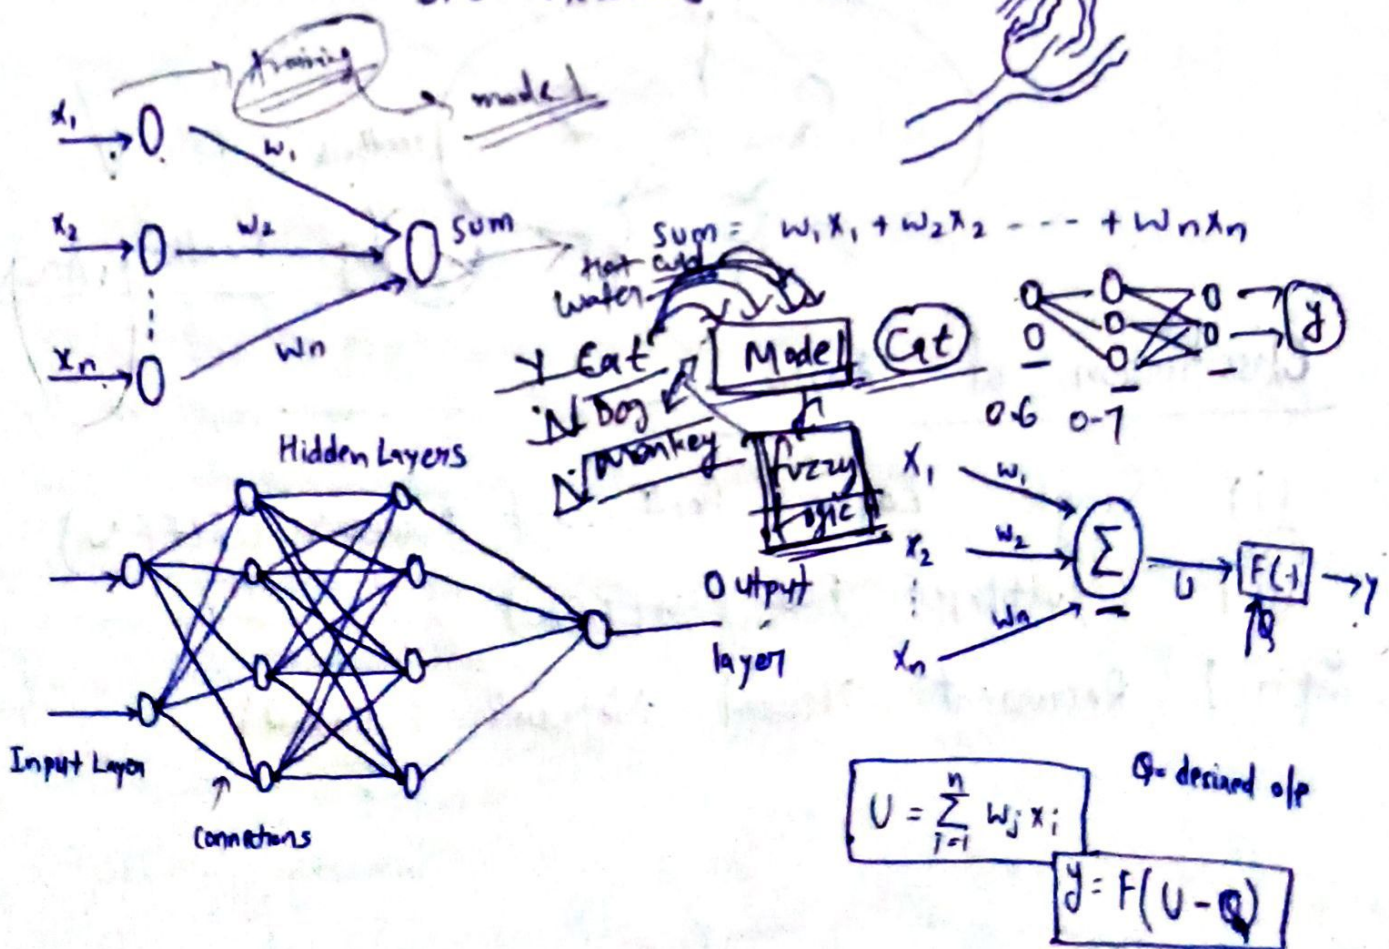 training
model
x₁
w₁
x₂
w₂
sum
xₙ
wₙ
sum = w₁x₁ + w₂x₂ ---- + wₙxₙ
Hot cold
water
Y Cat
N Dog
N Monkey
Model
Cat
fuzzy
logic
y
0-6 0-7
Hidden Layers
Input Layer
Connections
Output
layer
x₁
w₁
x₂
w₂
⋮
xₙ
wₙ
Σ
U
F(.)
y
Q
Q = desired o/p
U = Σ wⱼ xᵢ
n
i=1
y = F(U - Q)